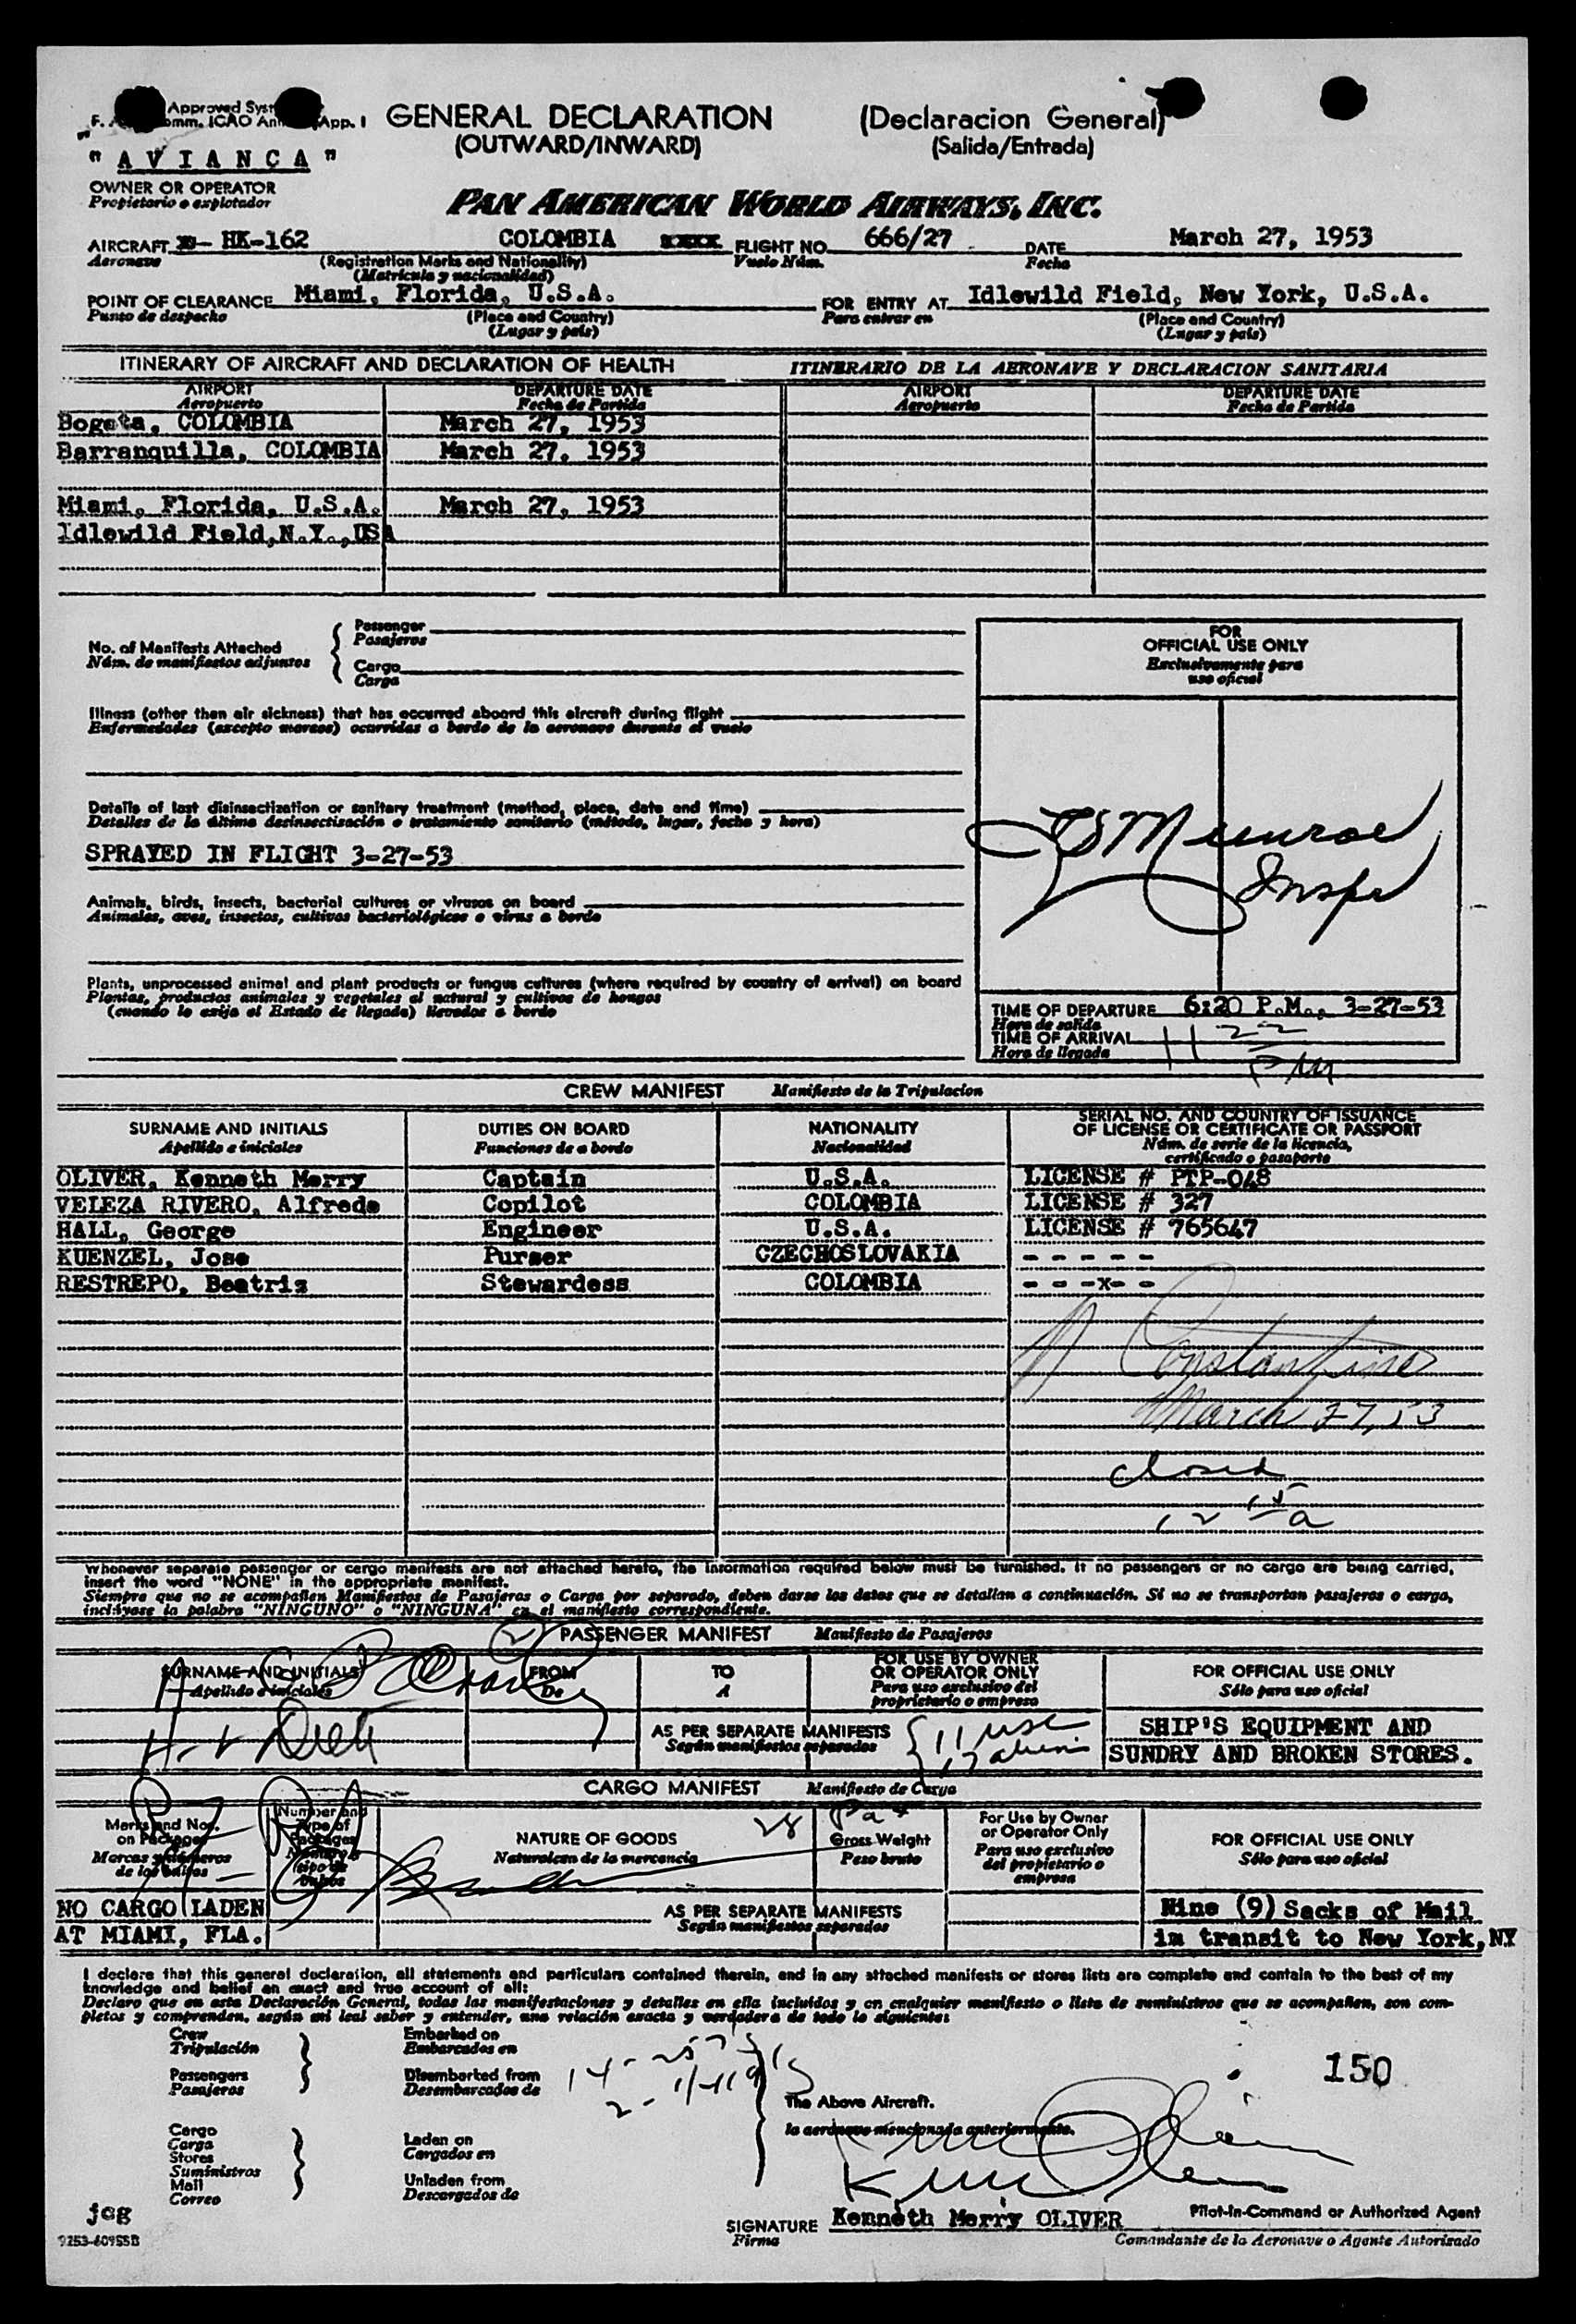 Approved
F. omm. ICAO An App. I
GENERAL DECLARATION (Declaracion General)
(OUTWARD/INWARD) (Salida/Entrada)
" A V I A N C A "
OWNER OR OPERATOR
Propietario o explotador
PAN AMERICAN WORLD AIRWAYS, INC.
AIRCRAFT HK-162 COLOMBIA FLIGHT NO. 666/27 DATE March 27, 1953
Aeronave (Registration Marks and Nationality) Vuelo Núm. Fecha
(Matricula y nacionalidad)
POINT OF CLEARANCE Miami, Florida, U.S.A. FOR ENTRY AT Idlewild Field, New York, U.S.A.
Punto de despacho (Place and Country) Para entrar en (Place and Country)
(Lugar y país) (Lugar y país)
ITINERARY OF AIRCRAFT AND DECLARATION OF HEALTH ITINERARIO DE LA AERONAVE Y DECLARACION SANITARIA
AIRPORT DEPARTURE DATE AIRPORT DEPARTURE DATE
Aeropuerto Fecha de Partida Aeropuerto Fecha de Partida
Bogota, COLOMBIA March 27, 1953
Barranquilla, COLOMBIA March 27, 1953
Miami, Florida, U.S.A. March 27, 1953
Idlewild Field,N.Y.,USA
No. of Manifests Attached
Núm. de manifiestos adjuntos
Passenger
Pasajeros
Cargo
Carga
FOR
OFFICIAL USE ONLY
Exclusivamente para
uso oficial
Illness (other than air sickness) that has occurred aboard this aircraft during flight
Enfermedades (excepto mareos) ocurridas a bordo de la aeronave durante el vuelo
Details of last disinsectization or sanitary treatment (method, place, date and time)
Detalles de la última desinsectización o tratamiento sanitario (método, lugar, fecha y hora)
SPRAYED IN FLIGHT 3-27-53
Munroe
Inspr
Animals, birds, insects, bacterial cultures or viruses on board
Animales, aves, insectos, cultivos bacteriológicos o virus a bordo
Plants, unprocessed animal and plant products or fungus cultures (where required by country of arrival) on board
Plantas, productos animales y vegetales al natural y cultivos de hongos
(cuando lo exija el Estado de llegada) llevados a bordo
TIME OF DEPARTURE 6:20 P.M., 3-27-53
Hora de salida
TIME OF ARRIVAL 11 22 PM
Hora de llegada
CREW MANIFEST Manifiesto de la Tripulacion
SURNAME AND INITIALS DUTIES ON BOARD NATIONALITY SERIAL NO. AND COUNTRY OF ISSUANCE
OF LICENSE OR CERTIFICATE OR PASSPORT
Apellido e iniciales Funciones de a bordo Nacionalidad Núm. de serie de la licencia,
certificado o pasaporte
OLIVER, Kenneth Merry Captain U.S.A. LICENSE # PTP-048
VELEZA RIVERO, Alfredo Copilot COLOMBIA LICENSE # 327
HALL, George Engineer U.S.A. LICENSE # 765647
KUENZEL, Jose Purser CZECHOSLOVAKIA - - - - -
RESTREPO, Beatriz Stewardess COLOMBIA - - -x- -
Constantine
March 27, 53
closed
12 15 a
Whenever separate passenger or cargo manifests are not attached hereto, the information required below must be furnished. If no passengers or no cargo are being carried,
insert the word "NONE" in the appropriate manifest.
Siempre que no se acompañen Manifiestos de Pasajeros o Carga por separado, deben darse los datos que se detallan a continuación. Si no se transportan pasajeros o carga,
inclúyase la palabra "NINGUNO" o "NINGUNA" en el manifiesto correspondiente.
PASSENGER MANIFEST Manifiesto de Pasajeros
SURNAME AND INITIALS FROM TO FOR USE BY OWNER
OR OPERATOR ONLY FOR OFFICIAL USE ONLY
Apellido e iniciales De A Para uso exclusivo del
propietario o empresa Sólo para uso oficial
AS PER SEPARATE MANIFESTS 11 usc SHIP'S EQUIPMENT AND
Según manifiestos separados SUNDRY AND BROKEN STORES.
CARGO MANIFEST Manifiesto de Carga
28
Marks and Nos.
on Packages
Marcas y números
de los bultos
Number and
Type of
Packages
NATURE OF GOODS
Naturaleza de la mercancía
Gross Weight
Peso bruto
For Use by Owner
or Operator Only
Para uso exclusivo
del propietario o
empresa
FOR OFFICIAL USE ONLY
Sólo para uso oficial
NO CARGO LADEN AS PER SEPARATE MANIFESTS Nine (9) Sacks of Mail
AT MIAMI, FLA. Según manifiestos separados in transit to New York,NY
I declare that this general declaration, all statements and particulars contained therein, and in any attached manifests or stores lists are complete and contain to the best of my
knowledge and belief an exact and true account of all:
Declaro que en esta Declaración General, todas las manifestaciones y detalles en ella incluidos y en cualquier manifiesto o lista de suministros que se acompañen, son com-
pletos y comprenden, según mi leal saber y entender, una relación exacta y verdadera de todo lo siguiente:
Crew Embarked on
Tripulación Embarcados en
Passengers Disembarked from
Pasajeros Desembarcados de
150
The Above Aircraft.
la aeronave mencionada anteriormente.
Cargo
Carga Laden on
Stores Cargados en
Suministros
Mail Unladen from
Correo Descargados de
jcg
9253-6095SB
SIGNATURE Kenneth Merry OLIVER Pilot-in-Command or Authorized Agent
Firma Comandante de la Aeronave o Agente Autorizado